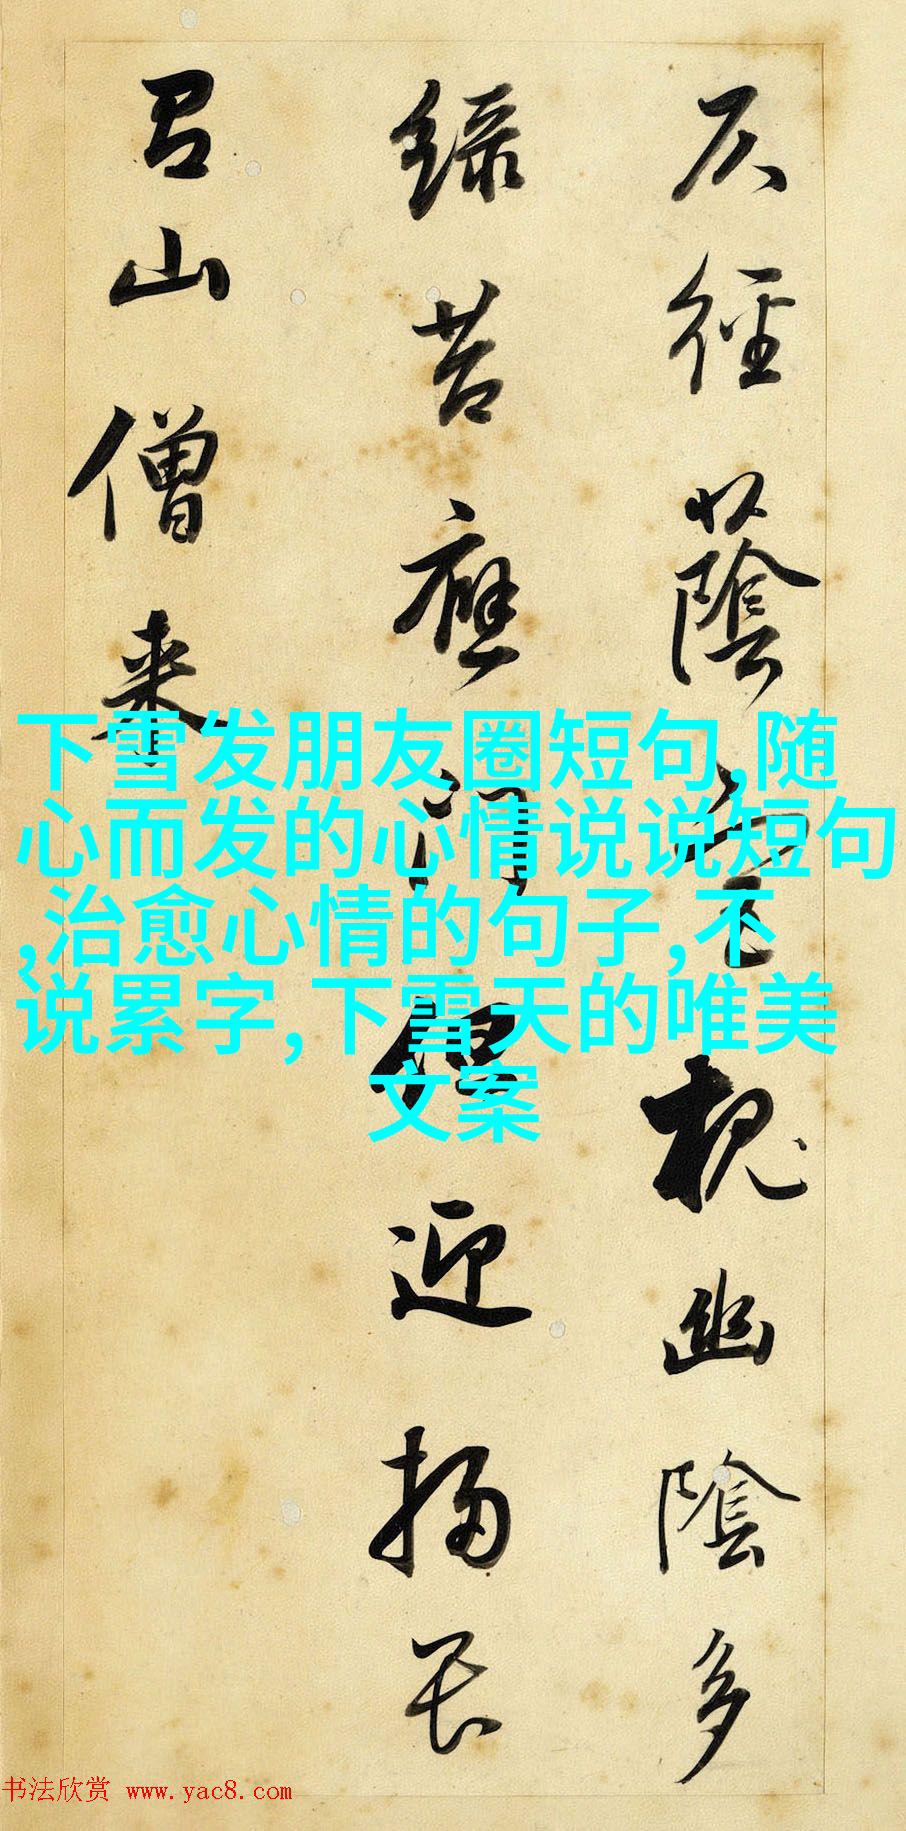 仄徑蔭宮槐幽陰多
綠苔應門但迎掃畏
有山僧來
下雪发朋友圈短句,随
心而发的心情说说短句
,治愈心情的句子,不
说累字,下雪天的唯美
文案
书法欣赏 www.yac8.com